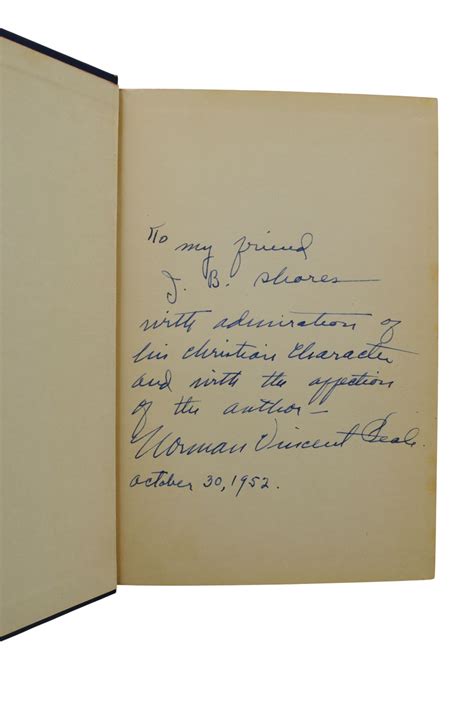 To my friend
J. B. Shores
with admiration of
his Christian character
and with the affection
of the author—
Norman Vincent Peale.
October 30, 1952.